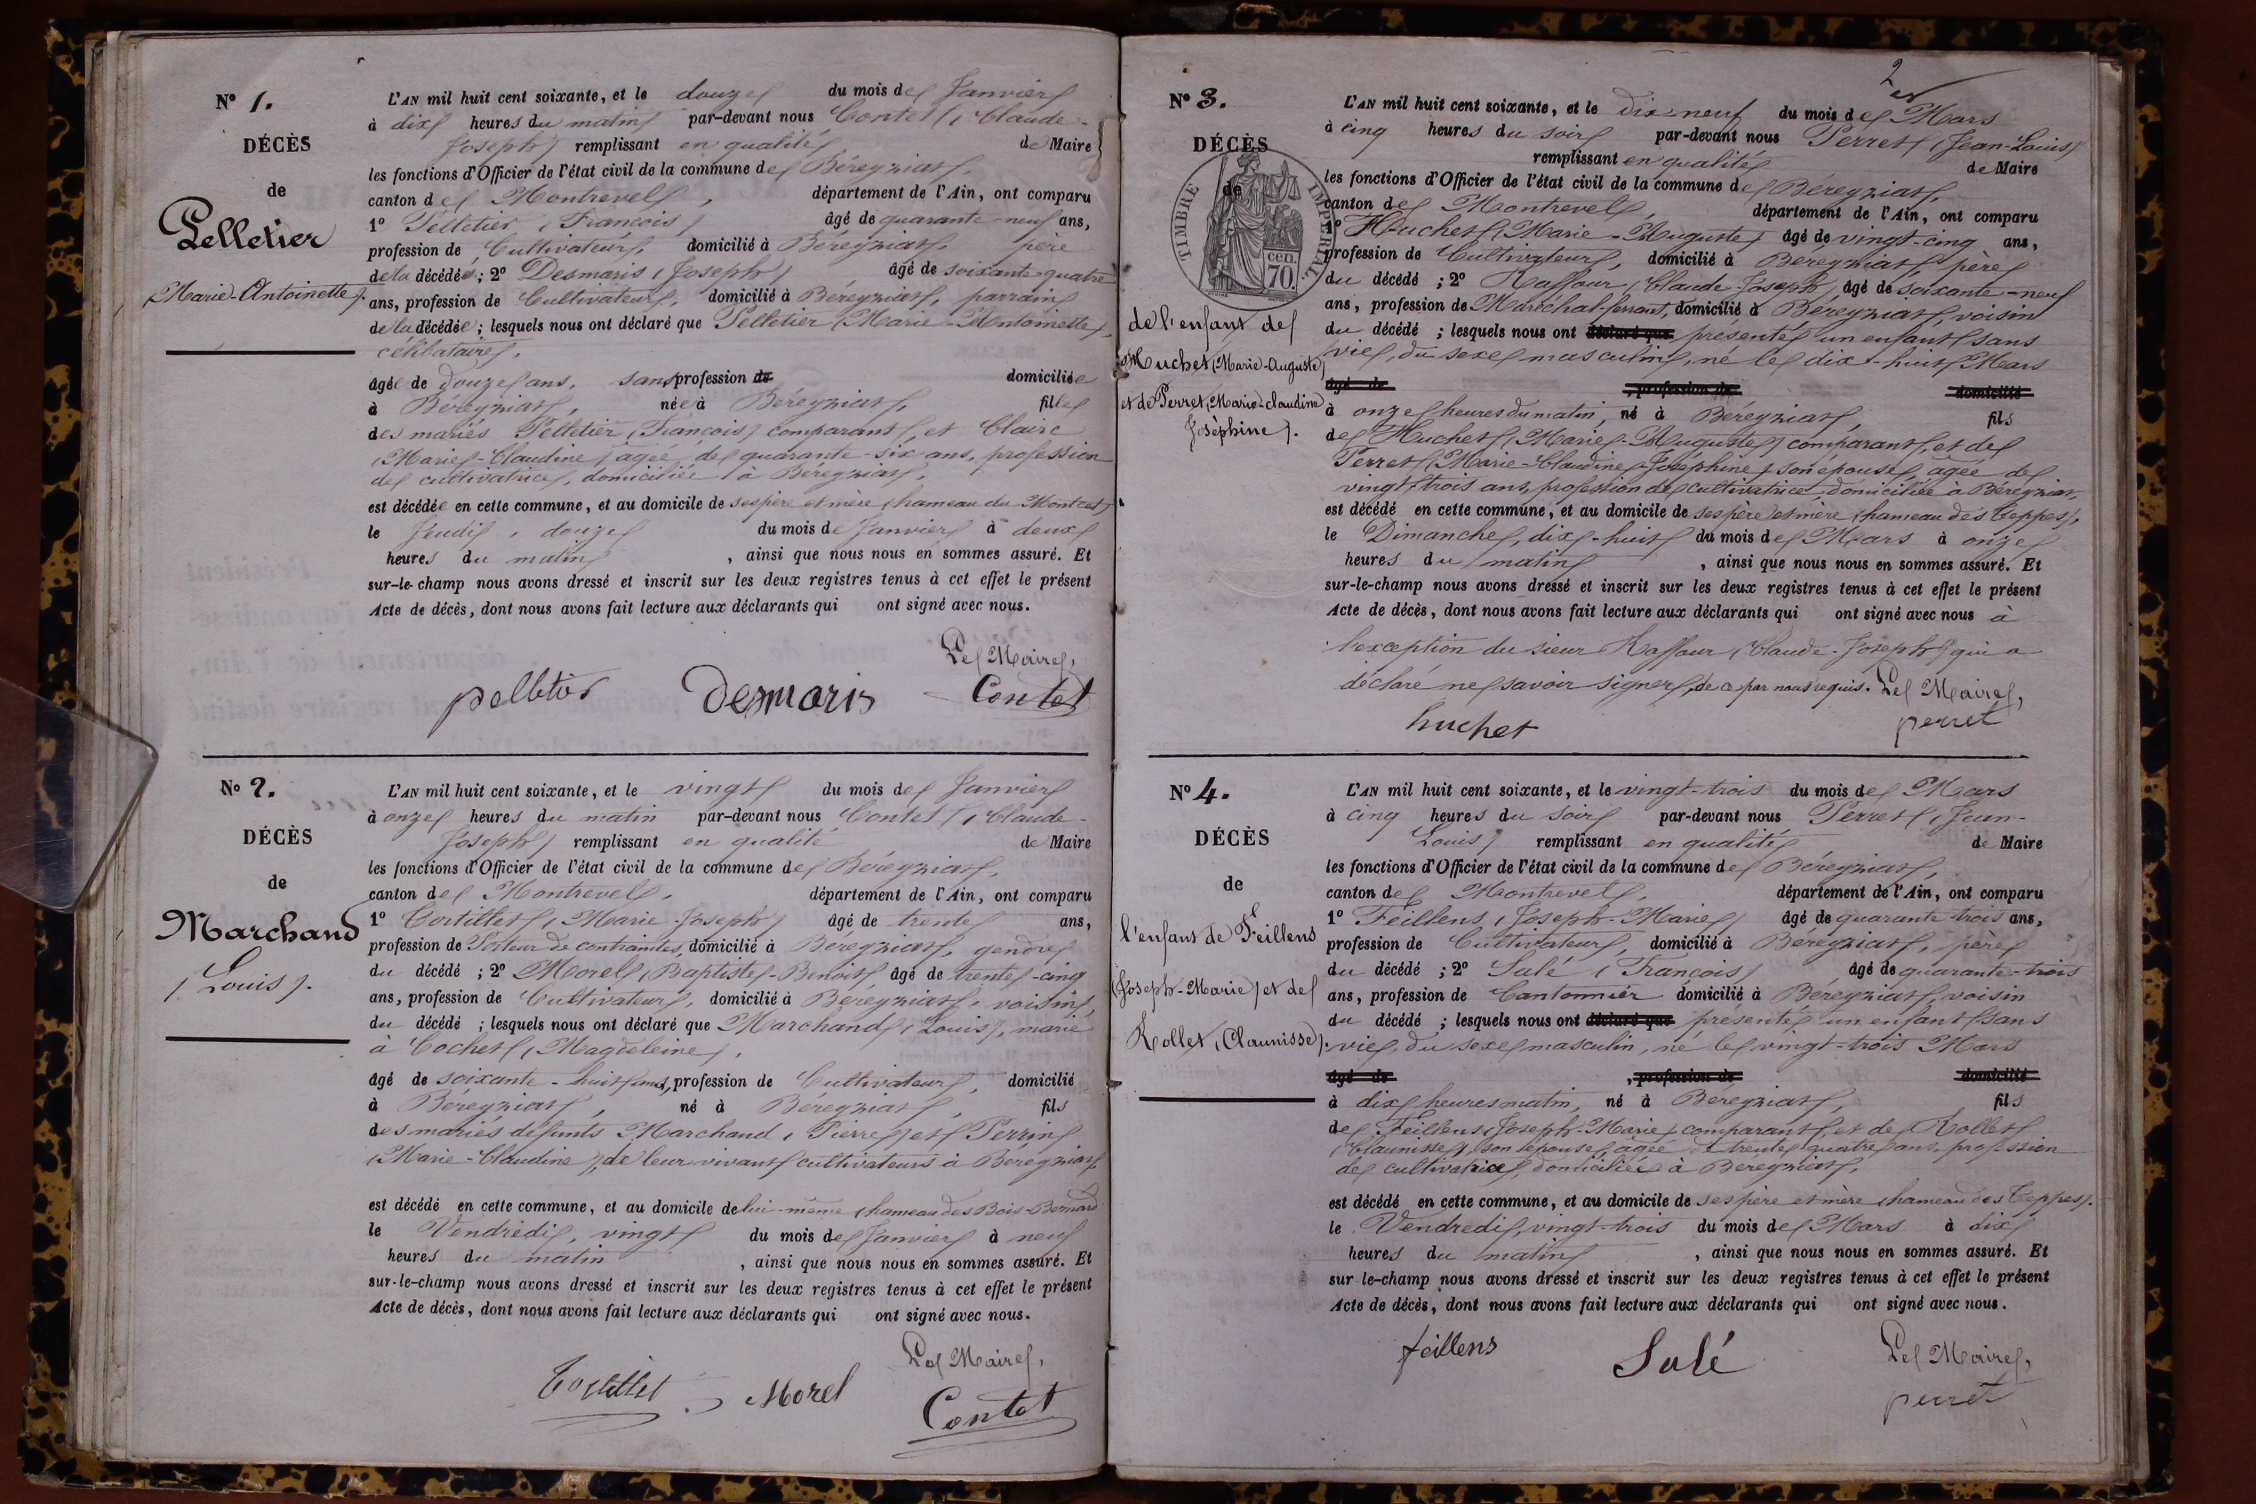 N° 1.
DÉCÈS
de
Pelletier
(Marie-Antoinette).
L'AN mil huit cent soixante, et le douze du mois de Janvier
à dix heures du matin par-devant nous Contet (Claude-
Joseph) remplissant en qualité de Maire
les fonctions d'Officier de l'état civil de la commune de Béreyziat,
canton de Montrevel, département de l'Ain, ont comparu
1° Pelletier (François) âgé de quarante-neuf ans,
profession de Cultivateur, domicilié à Béreyziat, père
de la décédée; 2° Desmaris (Joseph) âgé de soixante-quatre
ans, profession de Cultivateur, domicilié à Béreyziat, parrain
de la décédée; lesquels nous ont déclaré que Pelletier (Marie-Antoinette),
célibataire,
âgée de douze ans, sans profession de domiciliée
à Béreyziat, née à Béreyziat, fille
des mariés Pelletier (François) comparant, et Claire
(Marie-Claudine) agée de quarante-six ans, profession
de cultivatrice, domiciliée à Béreyziat,
est décédée en cette commune, et au domicile de ses père et mère (hameau du Montcet)
le Jeudi, douze du mois de Janvier à deux
heures du matin, ainsi que nous nous en sommes assuré. Et
sur-le-champ nous avons dressé et inscrit sur les deux registres tenus à cet effet le présent
Acte de décès, dont nous avons fait lecture aux déclarants qui ont signé avec nous.
Le Maire,
pelletier Desmaris Contet
N° 2.
DÉCÈS
de
Marchand
(Louis).
L'AN mil huit cent soixante, et le vingt du mois de Janvier
à onze heures du matin par-devant nous Contet (Claude-
Joseph) remplissant en qualité de Maire
les fonctions d'Officier de l'état civil de la commune de Béreyziat,
canton de Montrevel, département de l'Ain, ont comparu
1° Cortillet (Marie-Joseph) âgé de trente ans,
profession de Porteur de contraintes, domicilié à Béreyziat, gendre
du décédé; 2° Morel (Baptiste-Benoit) âgé de trente-cinq
ans, profession de Cultivateur, domicilié à Béreyziat, voisin
du décédé; lesquels nous ont déclaré que Marchand (Louis), marié
à Cochet (Magdeleine),
âgé de soixante-huit ans, profession de Cultivateur, domicilié
à Béreyziat, né à Béreyziat, fils
des mariés défunts Marchand (Pierre) et Perrin
(Marie-Claudine), de leur vivant cultivateurs à Bereyziat,
est décédé en cette commune, et au domicile de lui-même (hameau des Bois-Bernard
le Vendredi, vingt du mois de Janvier à neuf
heures du matin, ainsi que nous nous en sommes assuré. Et
sur-le-champ nous avons dressé et inscrit sur les deux registres tenus à cet effet le présent
Acte de décès, dont nous avons fait lecture aux déclarants qui ont signé avec nous.
Le Maire,
Cortillet Morel Contet
2
N° 3.
DÉCÈS
de
TIMBRE IMPÉRIAL
70 cen.
de l'enfant de
Huchet (Marie-Auguste)
et de Perret (Marie-claudine
Josèphine).
L'AN mil huit cent soixante, et le dix-neuf du mois de Mars
à cinq heures du soir par-devant nous Perret (Jean-Louis)
remplissant en qualité de Maire
les fonctions d'Officier de l'état civil de la commune de Béreyziat,
canton de Montrevel, département de l'Ain, ont comparu
1° Huchet (Marie-Auguste) âgé de vingt-cinq ans,
profession de Cultivateur, domicilié à Bereyziat, père
du décédé; 2° Raffour (Claude Joseph) âgé de soixante-neuf
ans, profession de Maréchal-ferrant, domicilié à Béreyziat, voisin
du décédé; lesquels nous ont déclaré que présenté un enfant sans
vie, du sexe masculin, né le dix-huit Mars
âgé de, profession de domicilié
à onze heures du matin, né à Béreyziat, fils
de Huchet (Marie-Auguste) comparant, et de
Perret (Marie-Claudine-Joséphine) son épouse, âgée de
vingt-trois ans, profession de cultivatrice, domiciliée à Béreyziat,
est décédé en cette commune, et au domicile de ses père et mère (hameau des Teppes),
le Dimanche, dix-huit du mois de Mars à onze
heures du matin, ainsi que nous nous en sommes assuré. Et
sur-le-champ nous avons dressé et inscrit sur les deux registres tenus à cet effet le présent
Acte de décès, dont nous avons fait lecture aux déclarants qui ont signé avec nous à
l'exception du sieur Raffour (Claude-Joseph) qui a
déclaré ne savoir signer, de ce par nous requis. Le Maire,
huchet perret
N° 4.
DÉCÈS
de
l'enfant de Feillens
(Joseph-Marie) et de
Rollet (Claunisse).
L'AN mil huit cent soixante, et le vingt-trois du mois de Mars
à cinq heures du soir par-devant nous Perret (Jean-
Louis) remplissant en qualité de Maire
les fonctions d'Officier de l'état civil de la commune de Béreyziat,
canton de Montrevel, département de l'Ain, ont comparu
1° Feillens (Joseph-Marie) âgé de quarante-trois ans,
profession de Cultivateur, domicilié à Béreyziat, père
du décédé; 2° Salé (François) âgé de quarante-trois
ans, profession de Cantonnier domicilié à Béreyziat, voisin
du décédé; lesquels nous ont déclaré que présenté un enfant sans
vie, du sexe masculin, né le vingt-trois Mars
âgé de, profession de domicilié
à dix heures matin, né à Bereyziat, fils
de Feillens (Joseph-Marie) comparant, et de Rollet
(Claunisse) son épouse, âgée de trente quatre ans, profession
de cultivatrice, domiciliée à Bereyziat,
est décédé en cette commune, et au domicile de ses père et mère (hameau des Teppes).
le Vendredi, vingt-trois du mois de Mars à dix
heures du matin, ainsi que nous nous en sommes assuré. Et
sur le-champ nous avons dressé et inscrit sur les deux registres tenus à cet effet le présent
Acte de décès, dont nous avons fait lecture aux déclarants qui ont signé avec nous.
feillens Salé Le Maire,
perret